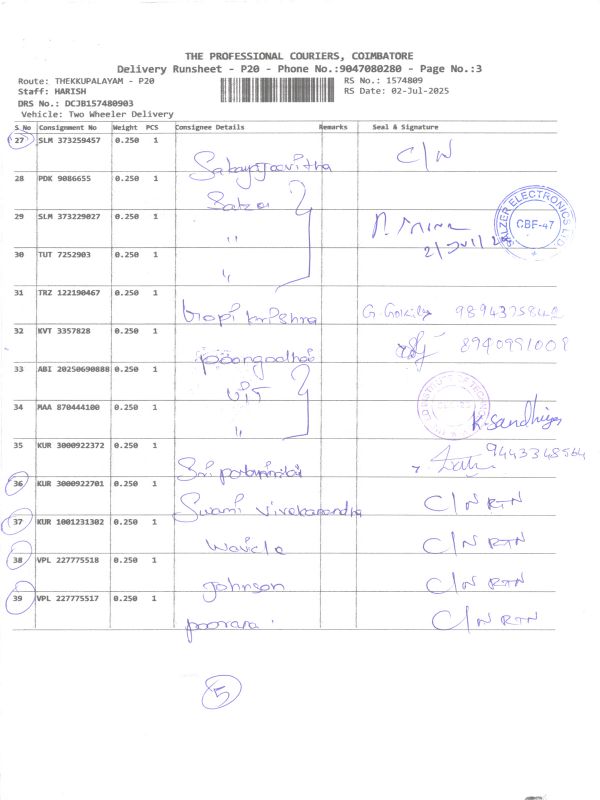 THE PROFESSIONAL COURIERS, COIMBATORE
Delivery Runsheet - P20 - Phone No.:9047080280 - Page No.:3
Route: THEKKUPALAYAM - P20 RS No.: 1574809
Staff: HARISH RS Date: 02-Jul-2025
DRS No.: DCJB157480903
Vehicle: Two Wheeler Delivery
S No Consignment No Weight PCS Consignee Details Remarks Seal & Signature
27 SLM 373259457 0.250 1 C/N
28 PDK 9086655 0.250 1
29 SLM 373229027 0.250 1 "
SALZER ELECTRONICS LTD CBF-47
30 TUT 7252903 0.250 1 "
31 TRZ 122190467 0.250 1 Gopi Krishna
32 KVT 3357828 0.250 1 8940991009
33 ABI 20250690888 0.250 1
34 MAA 870444100 0.250 1 " K. Sandhiya
35 KUR 3000922372 0.250 1 9443348564
36 KUR 3000922701 0.250 1 Swami Vivekanandha C/N RTN
37 KUR 1001231302 0.250 1 C/N RTN
38 VPL 227775518 0.250 1 Johnson C/N RTN
39 VPL 227775517 0.250 1 C/N RTN
5